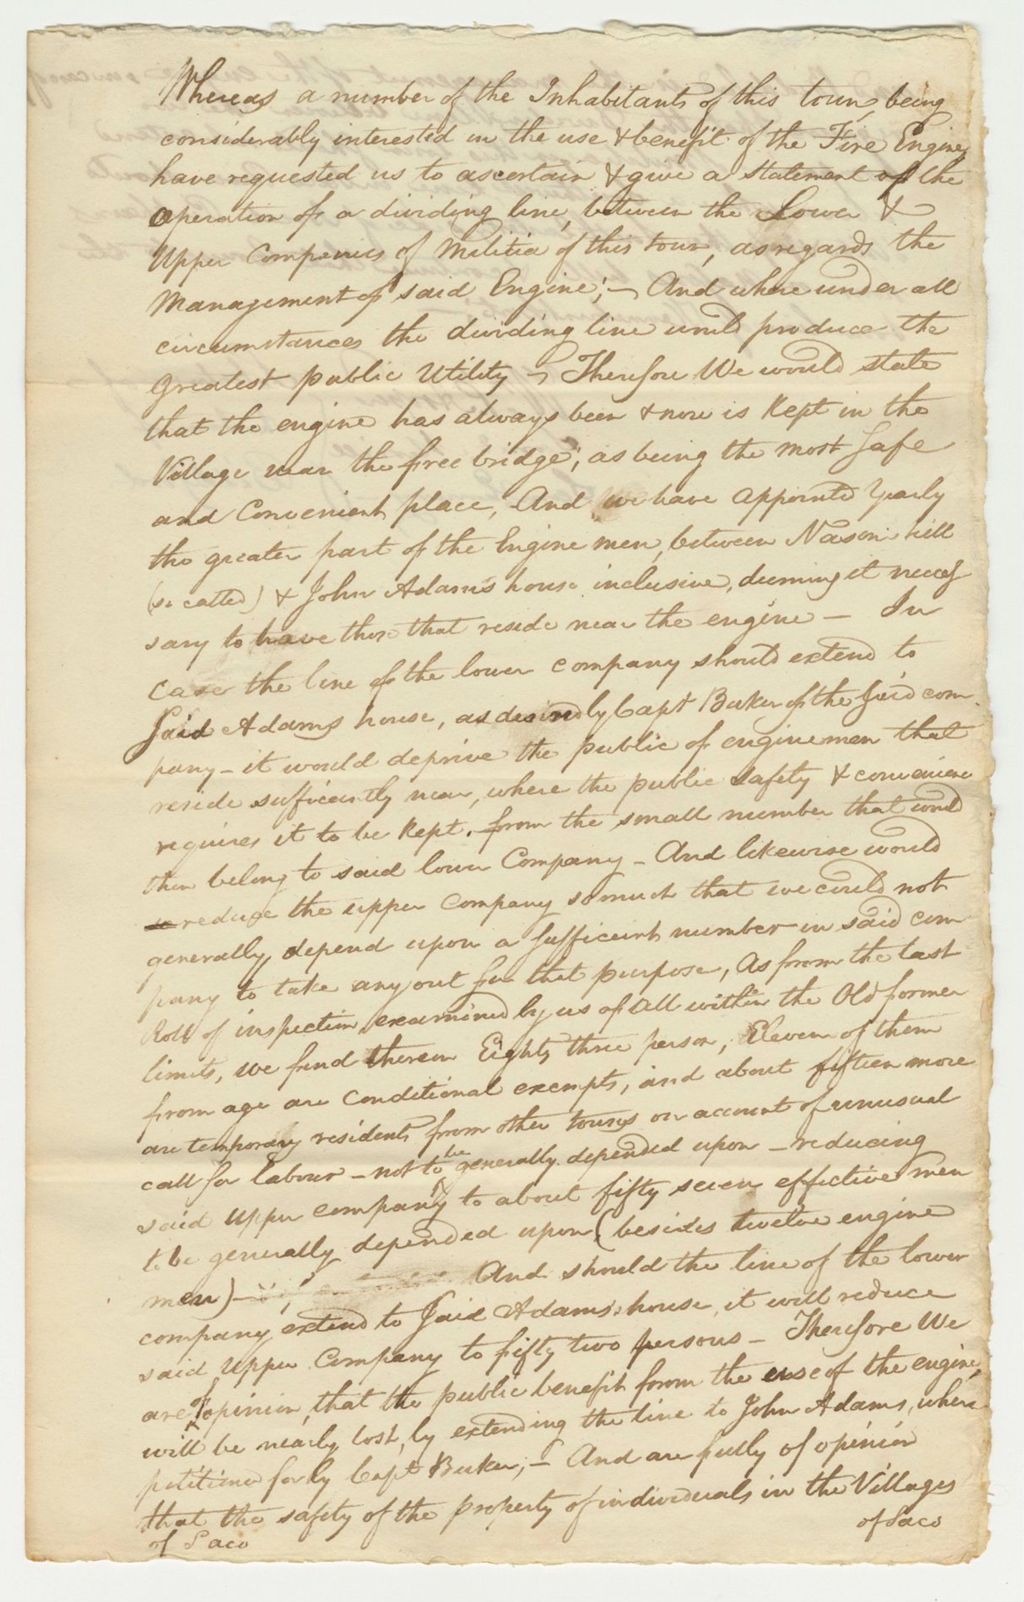 Whereas a number of the Inhabitants of this town, being
considerably interested in the use & benefit of the Fire Engine,
have requested us to ascertain & give a statement of the
operation of a dividing line, between the Lower &
Upper Companies of Militia of this town, as regards the
Management of said Engine; – And where under all
circumstances the dividing line would produce the
greatest public Utility – Therefore We would state
that the engine has always been & now is kept in the
Village near the free bridge, as being the most safe
and Convenient place, And we have appointed yearly
the greater part of the Engine men, between Nason hill
(so called) & John Adams house inclusive, deeming it neces
sary to have those that reside near the engine – In
case the line of the lower company should extend to
said Adams house, as desired by Capt Buker of the said com
pany – it would deprive the public of enginemen that
reside sufficiently near, where the public safety & convenience
requires it to be kept. from the small number that would
then belong to said lower Company – And likewise would
reduce the upper company so much that we could not
generally depend upon a sufficient number in said com
pany to take any out for that purpose, As from the last
Roll of inspection, examined by us of all within the Old former
limits, we find therein Eighty three person, Eleven of them
from age are Conditional exempts, and about fifteen more
are temporary residents from other towns on account of unusual
call for labour – not to be generally depended upon – reducing
said upper company to about fifty seven effective men
to be generally depended upon (besides twelve engine
men) – And should the line of the lower
company extend to said Adams's house, it will reduce
said Upper Company to fifty two persons – Therefore We
are of opinion, that the public benefit from the use of the engine,
will be nearly lost, by extending the line to John Adams, where
petitioned for by Capt Buker; – And are fully of opinion
that the safety of the property of individuals in the Villages
of Saco
of Saco